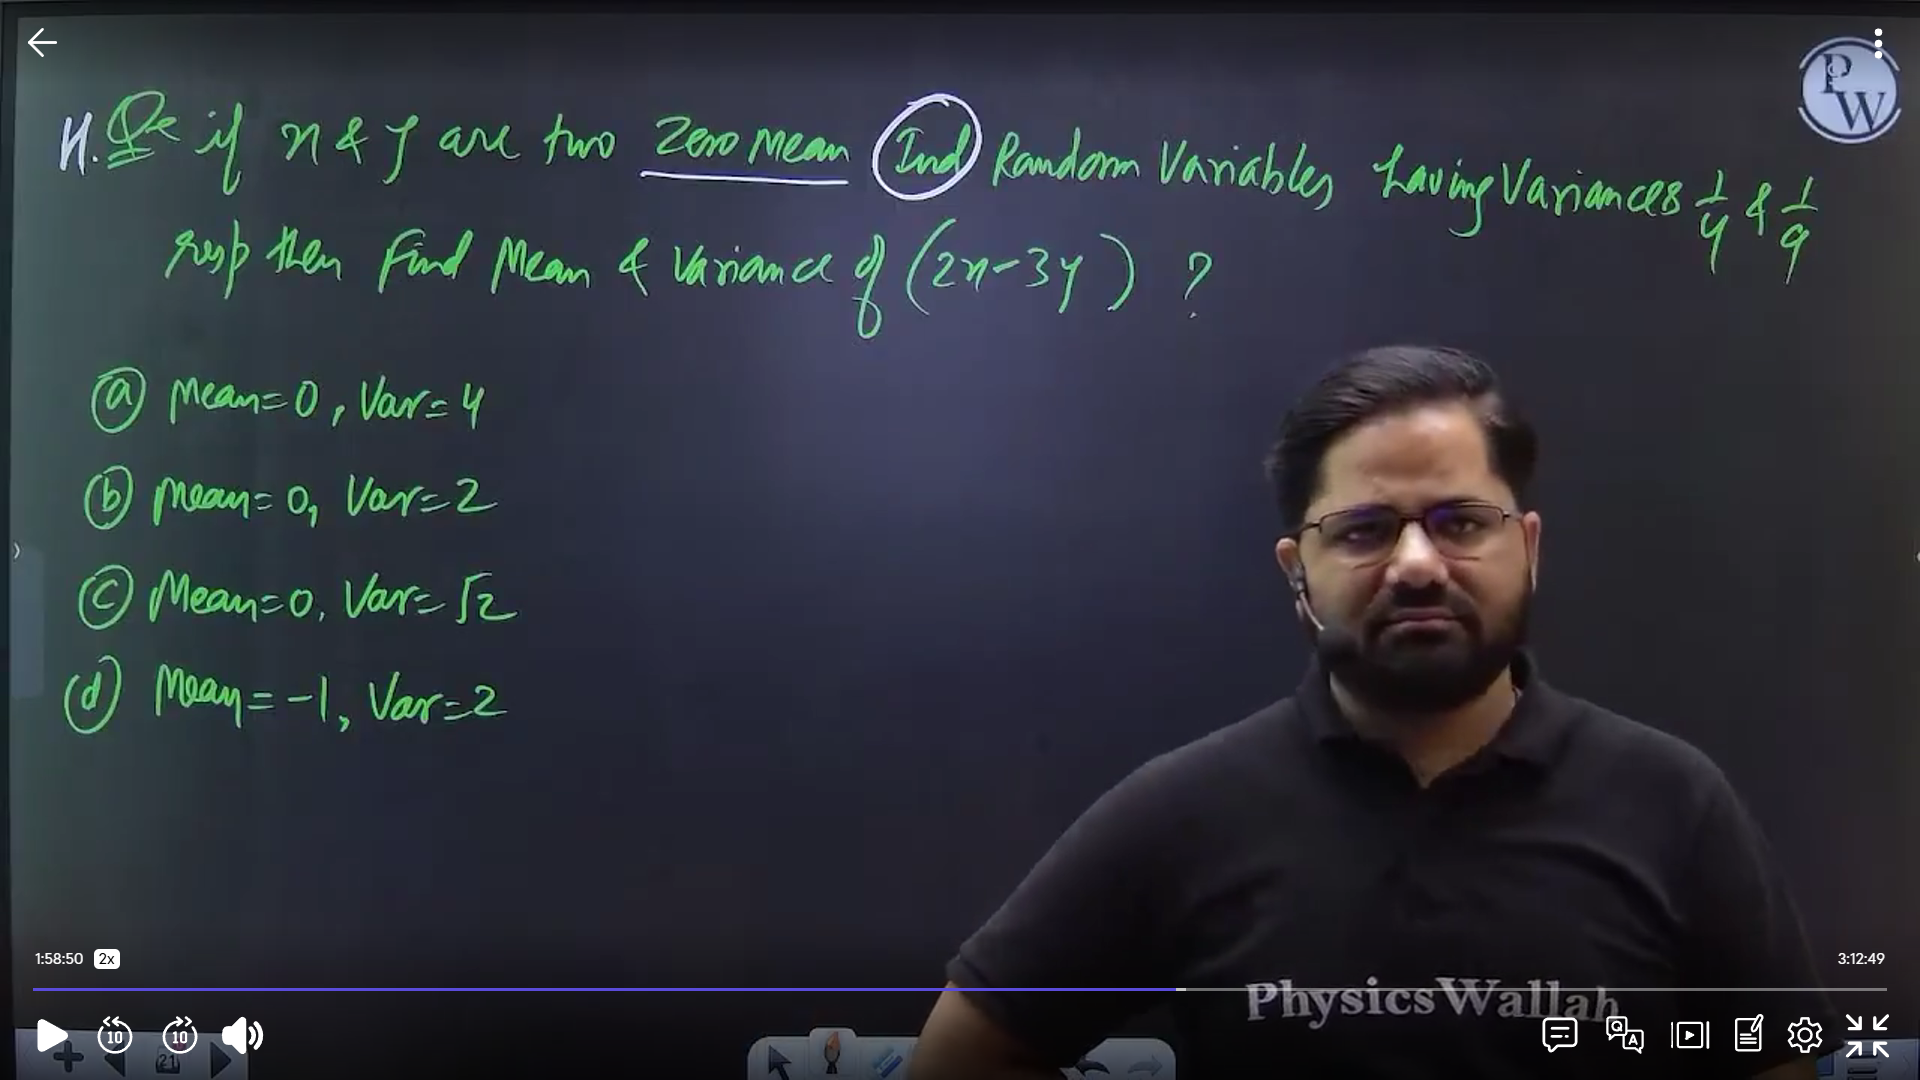 PW
H. Qs if x & y are two Zero Mean Ind Random Variables having Variances 1/4 & 1/9
resp then Find Mean & Variance of (2x-3y) ?
(a) Mean=0, Var=4
(b) Mean=0, Var=2
(c) Mean=0, Var=√2
(d) Mean=-1, Var=2
1:58:50 2x 3:12:49
PhysicsWallah
10 10
21